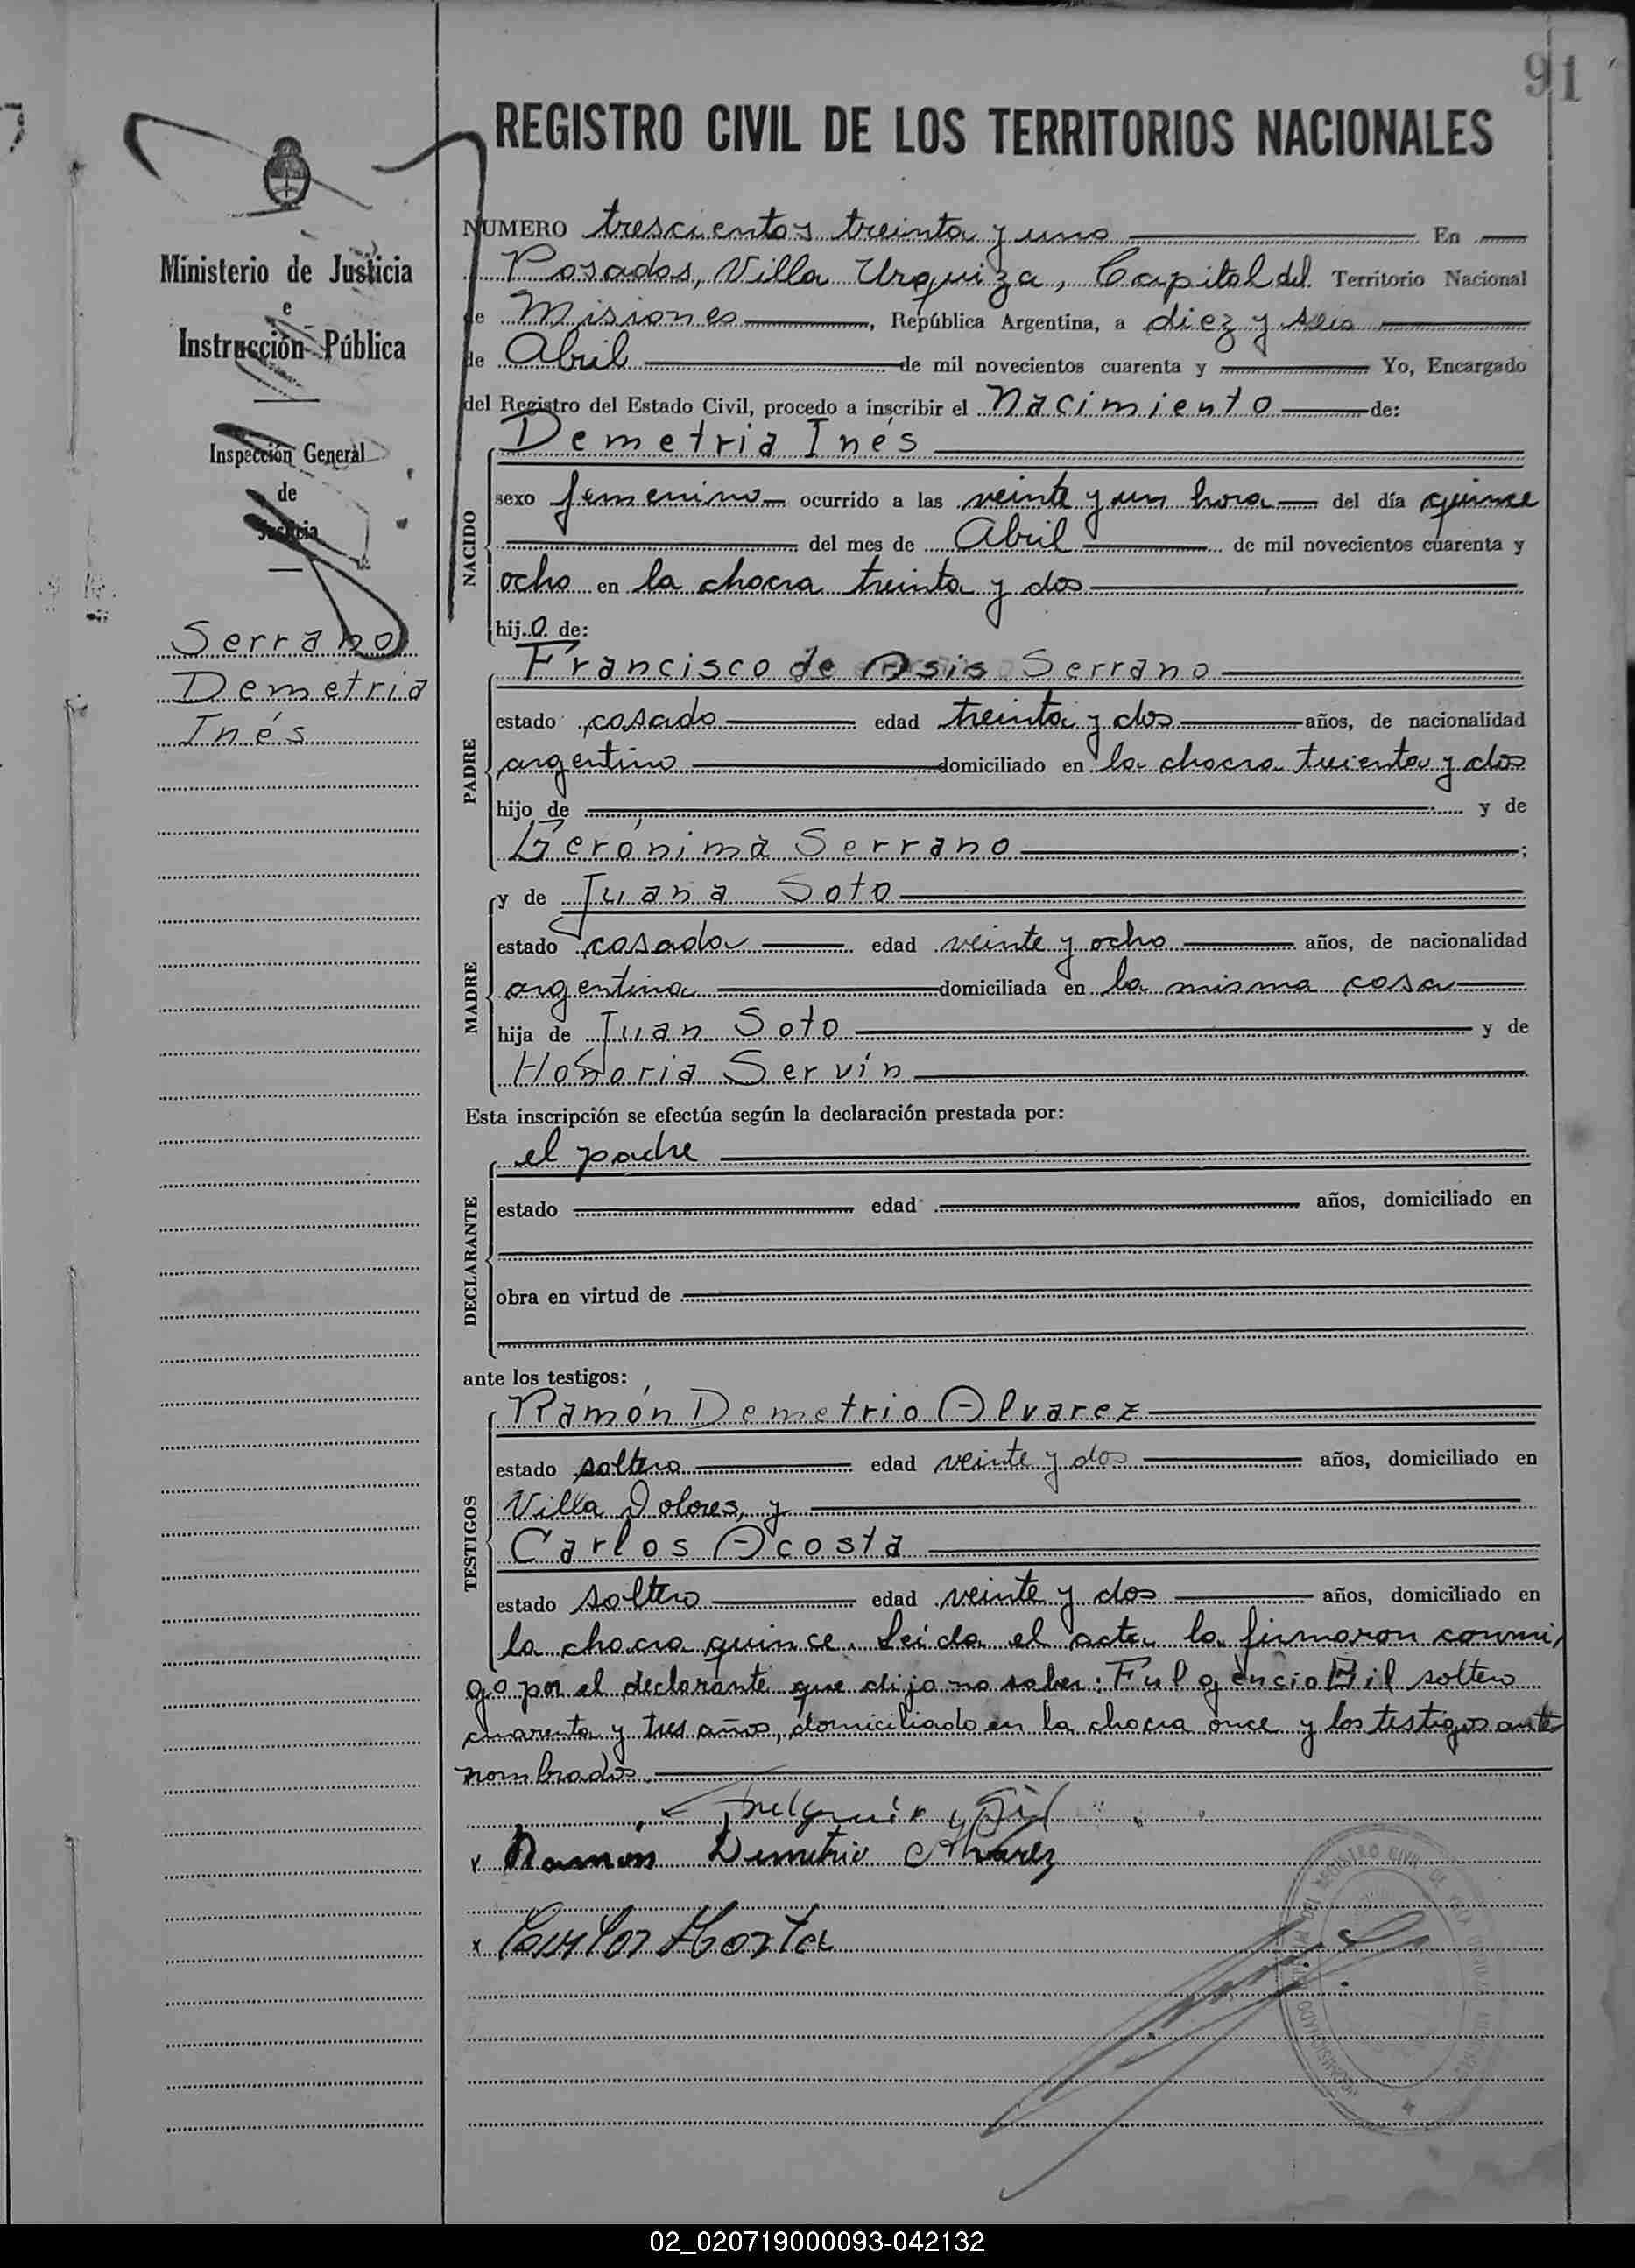 91
REGISTRO CIVIL DE LOS TERRITORIOS NACIONALES
Ministerio de Justicia
e
Instrucción Pública
Inspección General
de
Justicia
Serrano
Demetria
Inés
NUMERO trescientos treinta y uno En
Posadas, Villa Urquiza, Capital del Territorio Nacional
de Misiones, República Argentina, a diez y seis
de Abril de mil novecientos cuarenta y Yo, Encargado
del Registro del Estado Civil, procedo a inscribir el Nacimiento de:
NACIDO
Demetria Inés
sexo femenino ocurrido a las veinte y un hora del día quince
del mes de Abril de mil novecientos cuarenta y
ocho en la chacra treinta y dos
hij.o. de:
PADRE
Francisco de Asis Serrano
estado casado edad treinta y dos años, de nacionalidad
argentino domiciliado en la chacra treienta y dos
hijo de y de
Gerónima Serrano;
MADRE
y de Juana Soto
estado casada edad veinte y ocho años, de nacionalidad
argentina domiciliada en la misma casa
hija de Juan Soto y de
Honoria Servín
Esta inscripción se efectúa según la declaración prestada por:
DECLARANTE
el padre
estado edad años, domiciliado en
obra en virtud de
ante los testigos:
TESTIGOS
Ramón Demetrio Alvarez
estado soltero edad veinte y dos años, domiciliado en
Villa Dolores, y
Carlos Acosta
estado soltero edad veinte y dos años, domiciliado en
la chacra quince. Leída el acta la firmaron conmi,
go por el declarante que dijo no saber: Fulgencio Gil soltero
cuarenta y tres años, domiciliado en la chacra once y los testigos ante
nombrados.
Fulgencio Gil
x Ramón Demetrio Alvarez
x Carlos Acosta
REGISTRO CIVIL DE
02_020719000093-042132